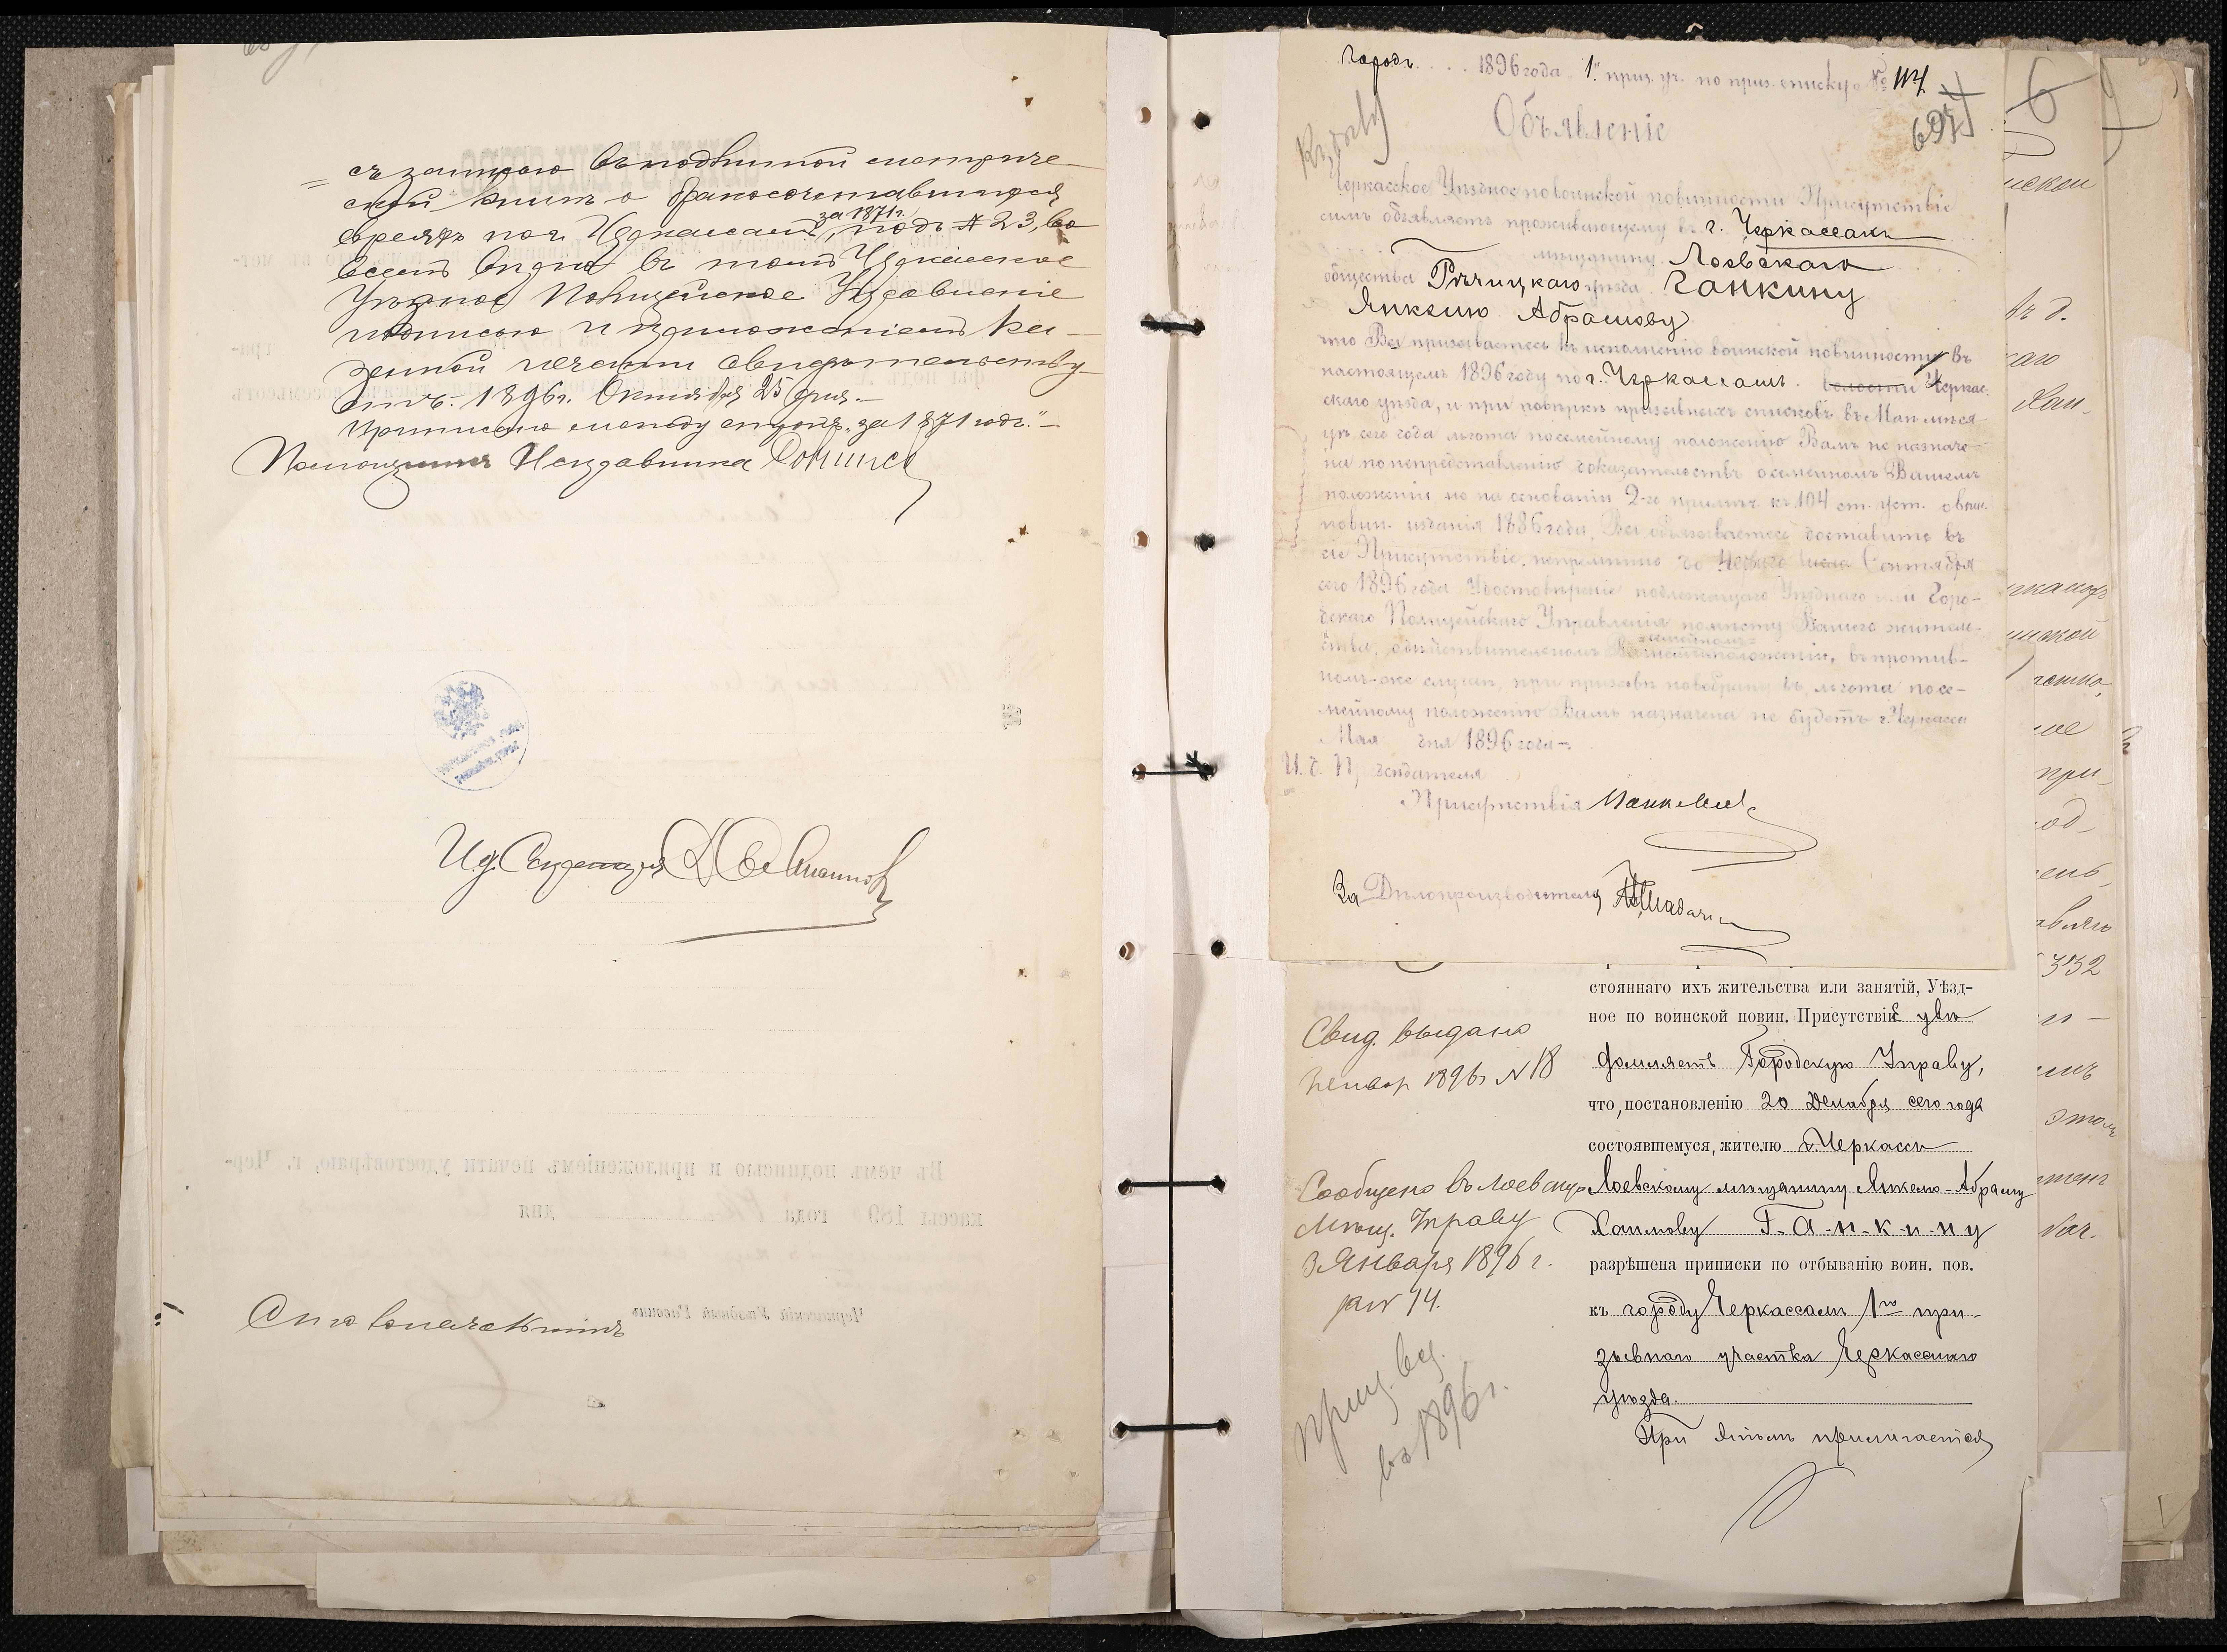 съ записью въ подлинной метриче-
ской книгѣ о бракосочетавшихся
евреяхъ по г. Черкассамъ за 1871 г., подъ № 23, во
всемъ вѣрна въ томъ Черкасское
Уѣздное Полицейское Управленіе
подписью и приложеніемъ ка-
зенной печати свидѣтельству-
етъ. 1896 г. Октября 25 дня.–
Приписано между строкъ „за 1871 годъ".–
Помощникъ Исправника
И. д. Секретаря
Въ чемъ подписью и приложеніемъ печати удостовѣряю, г. Чер-
кассы 189 года дня
Черкасскій Уѣздный Раввинъ
Городъ 1896 года 1" приз. уч. по приз. списку № 114
697
Объявленіе
Черкасское Уѣздное по воинской повинности Присутствіе
симъ объявляетъ проживающему въ г. Черкассахъ
мѣщанину Лоевскаго
общества Рѣчицкаго уѣзда Ганкину
Янкелю Абрамову
что Вы призываетесь къ исполненію воинской повинности въ
настоящемъ 1896 году по г. Черкассамъ волости Черкас-
скаго уѣзда, и при повѣркѣ призывныхъ списковъ въ Маѣ мѣся-
цѣ сего года льгота по семейному положенію Вамъ не назначе-
на по непредставленію доказательствъ о семейномъ Вашемъ
положеніи но на основаніи 2-го примѣч. къ 104 ст. уст. о воин.
повин. изданія 1886 года, Вы обязываетесь доставить въ
сіе Присутствіе, непремѣнно до числа Сентября
сего 1896 года Удостовѣреніе подлежащаго Уѣзднаго или Горо-
дскаго Полицейскаго Управленія по мѣсту Вашего житель-
ства, о дѣйствительномъ Вашемъ семейномъ положеніи, въ против-
номъ-же случаѣ, при призывѣ новобранцевъ, льгота по се-
мейному положенію Вамъ назначена не будетъ г. Черкассы
Мая дня 1896 года –
И. д. Предсѣдателя
Присутствія
За Дѣлопроизводителя
стояннаго ихъ жительства или занятій, Уѣзд-
ное по воинской повин. Присутствіе увѣ
домляетъ Городскую Управу,
что, постановленію 20 Декабря сего года
состоявшемуся, жителю г. Черкассъ
Лоевскому мѣщанину Янкелю-Абраму
Хаимову Г-а-н-к-и-н-у
разрѣшена приписки по отбыванію воин. пов.
къ городу Черкассамъ 1го при-
зывнаго участка Черкасскаго
уѣзда.
При этомъ прилагается
Свид. выдано
Январ 1896 № 18
Сообщено въ Лоевскую
Мѣщ. Управу
3 Января 1896 г.
за № 14.
въ 1896 г.
6
332